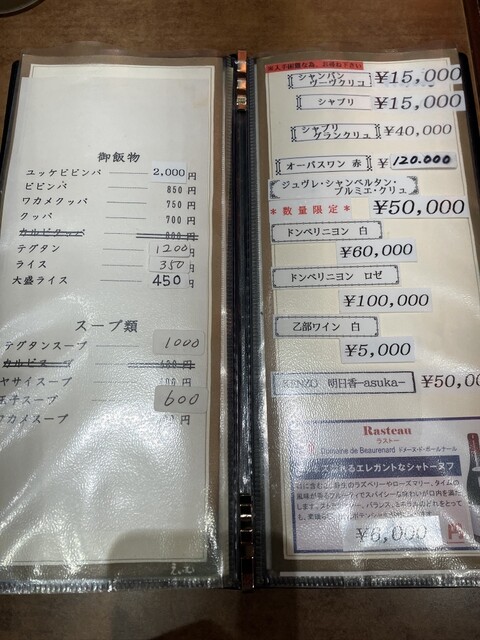 御飯物
ユッケビビンバ 2,000円
ビビンバ 850円
ワカメクッパ 750円
クッパ 700円
カルビクッパ 800円
テグタン 1200円
ライス 350円
大盛ライス 450円
スープ類
テグタンスープ 1000
カルビスープ
ヤサイスープ
玉子スープ 600
ワカメスープ 円
シャンパン
ヴーヴクリコ ¥15,000
シャブリ ¥15,000
シャブリ
グランクリュ ¥40,000
オーパスワン 赤 ¥120.000
ジュヴレ・シャンベルタン・
プルミエ・クリュ
*数量限定* ¥50,000
ドンペリニヨン 白
¥60,000
ドンペリニヨン ロゼ
¥100,000
乙部ワイン 白
¥5,000
KENZO 明日香-asuka- ¥50,00
Rasteau
ラストー
Domaine de Beaurenard ドメーヌ・ド・ボールナール
れるエレガントなシャトーヌフ
¥6,000 円